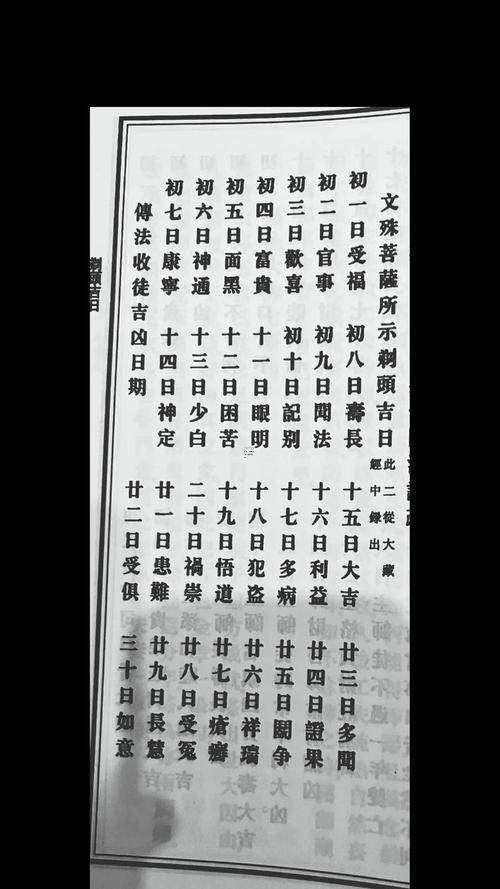 文殊菩薩所示剃頭吉日 此二從大藏經中録出
初一日受福 初八日壽長 十五日大吉 廿三日多聞
初二日官事 初九日聞法 十六日利益 廿四日證果
初三日歡喜 初十日記别 十七日多病 廿五日鬪争
初四日富貴 十一日眼明 十八日犯盗 廿六日祥瑞
初五日面黑 十二日困苦 十九日悟道 廿七日瘡癬
初六日神通 十三日少白 二十日禍崇 廿八日受冤
初七日康寧 十四日神定 廿一日患難 廿九日長慧
傳法收徒吉凶日期 廿二日受俱 三十日如意
剃頭吉日